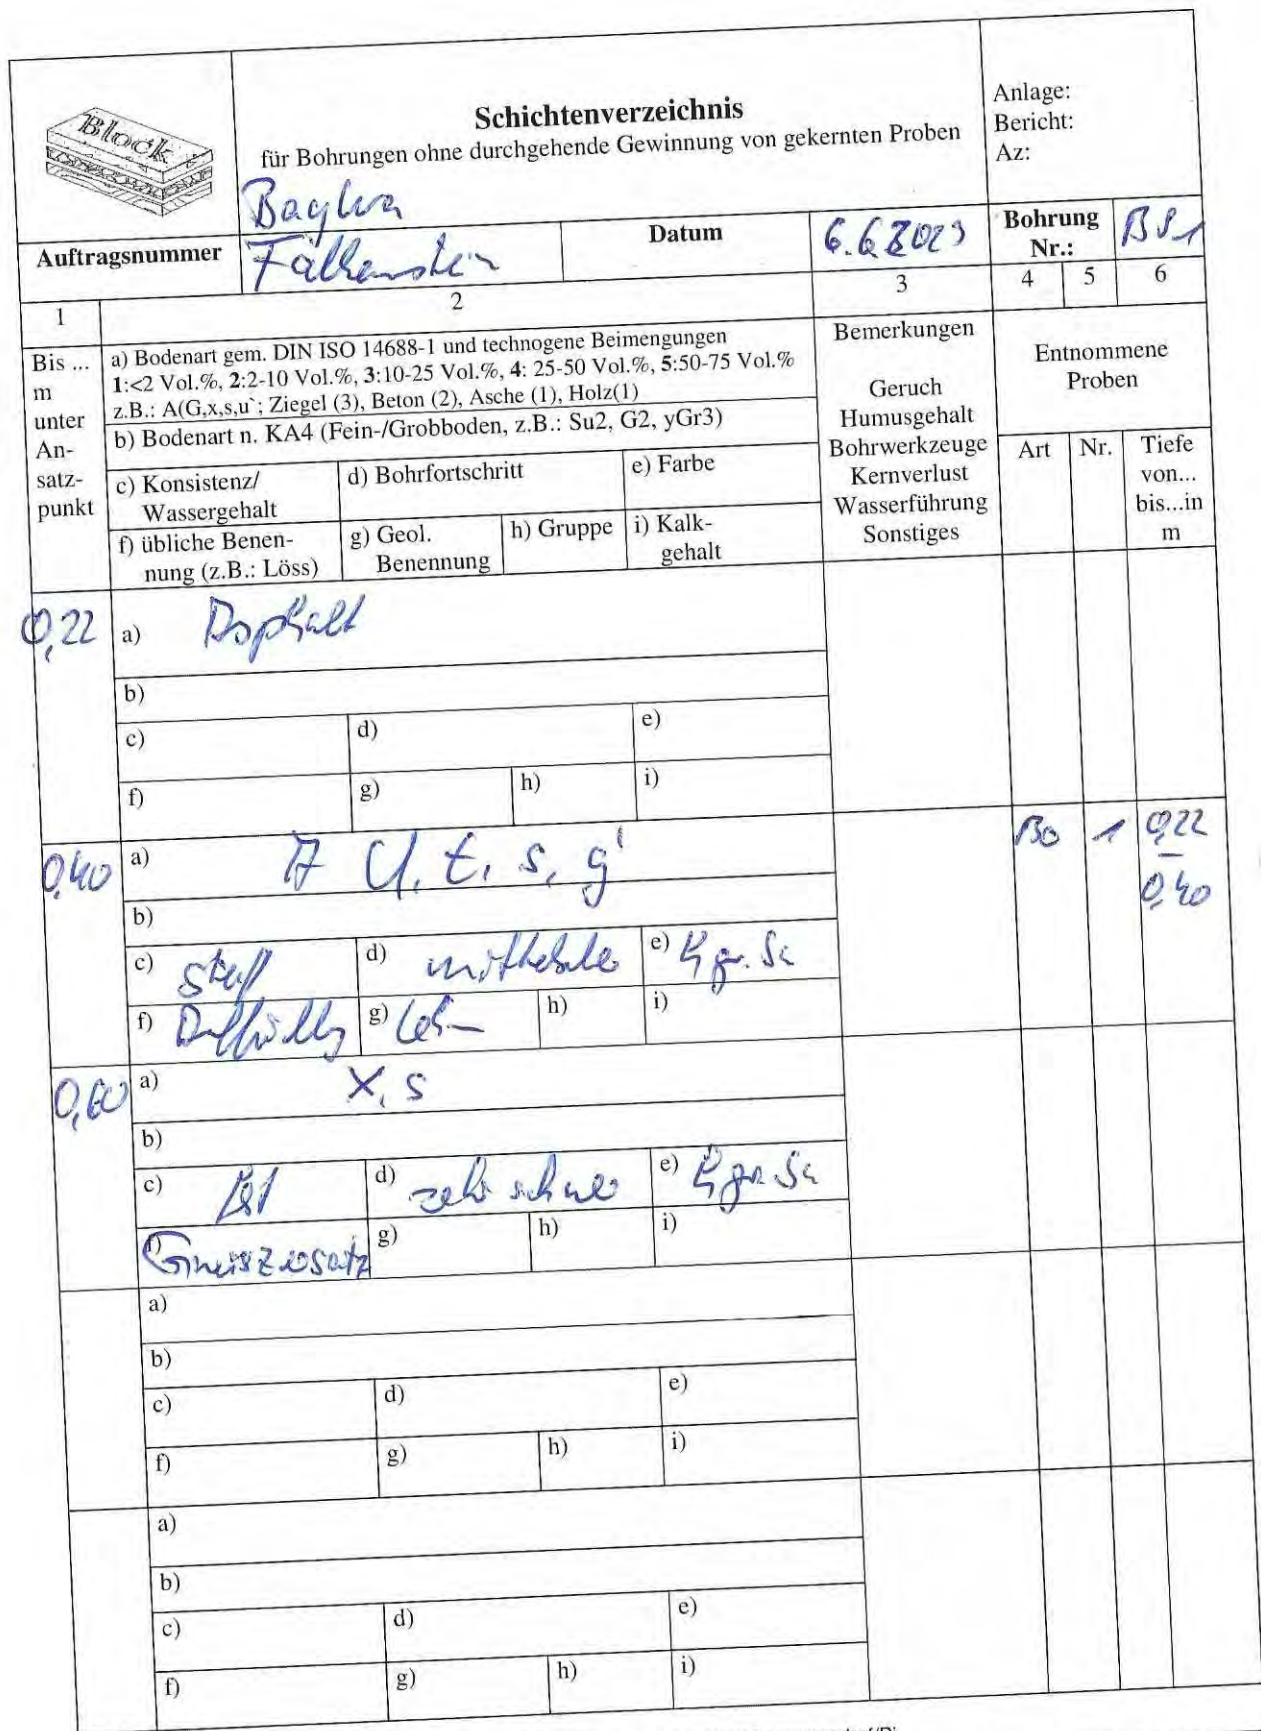 Block
Schichtenverzeichnis
für Bohrungen ohne durchgehende Gewinnung von gekernten Proben
Anlage:
Bericht:
Az:
Auftragsnummer
Falkenstein
Datum
6.6.2023
Bohrung
Nr.:
BS1
1
2
3
4
5
6
Bis ...
m
unter
An-
satz-
punkt
a) Bodenart gem. DIN ISO 14688-1 und technogene Beimengungen
1:<2 Vol.%, 2:2-10 Vol.%, 3:10-25 Vol.%, 4: 25-50 Vol.%, 5:50-75 Vol.%
z.B.: A(G,x,s,u`; Ziegel (3), Beton (2), Asche (1), Holz(1)
b) Bodenart n. KA4 (Fein-/Grobboden, z.B.: Su2, G2, yGr3)
c) Konsistenz/
Wassergehalt
d) Bohrfortschritt
e) Farbe
f) übliche Benen-
nung (z.B.: Löss)
g) Geol.
Benennung
h) Gruppe
i) Kalk-
gehalt
Bemerkungen
Geruch
Humusgehalt
Bohrwerkzeuge
Kernverlust
Wasserführung
Sonstiges
Entnommene
Proben
Art
Nr.
Tiefe
von...
bis...in
m
0,22
a) Asphalt
b)
c)
d)
e)
f)
g)
h)
i)
0,40
a) A U, t, s, g'
b)
c) steif
d) mittel
e)
f) Auffüllg
g) Lehm
h)
i)
BO
1
0,22
–
0,40
0,60
a) X, s
b)
c) fest
d) sehr schwer
e)
f) Gneiszersatz
g)
h)
i)
a)
b)
c)
d)
e)
f)
g)
h)
i)
a)
b)
c)
d)
e)
f)
g)
h)
i)